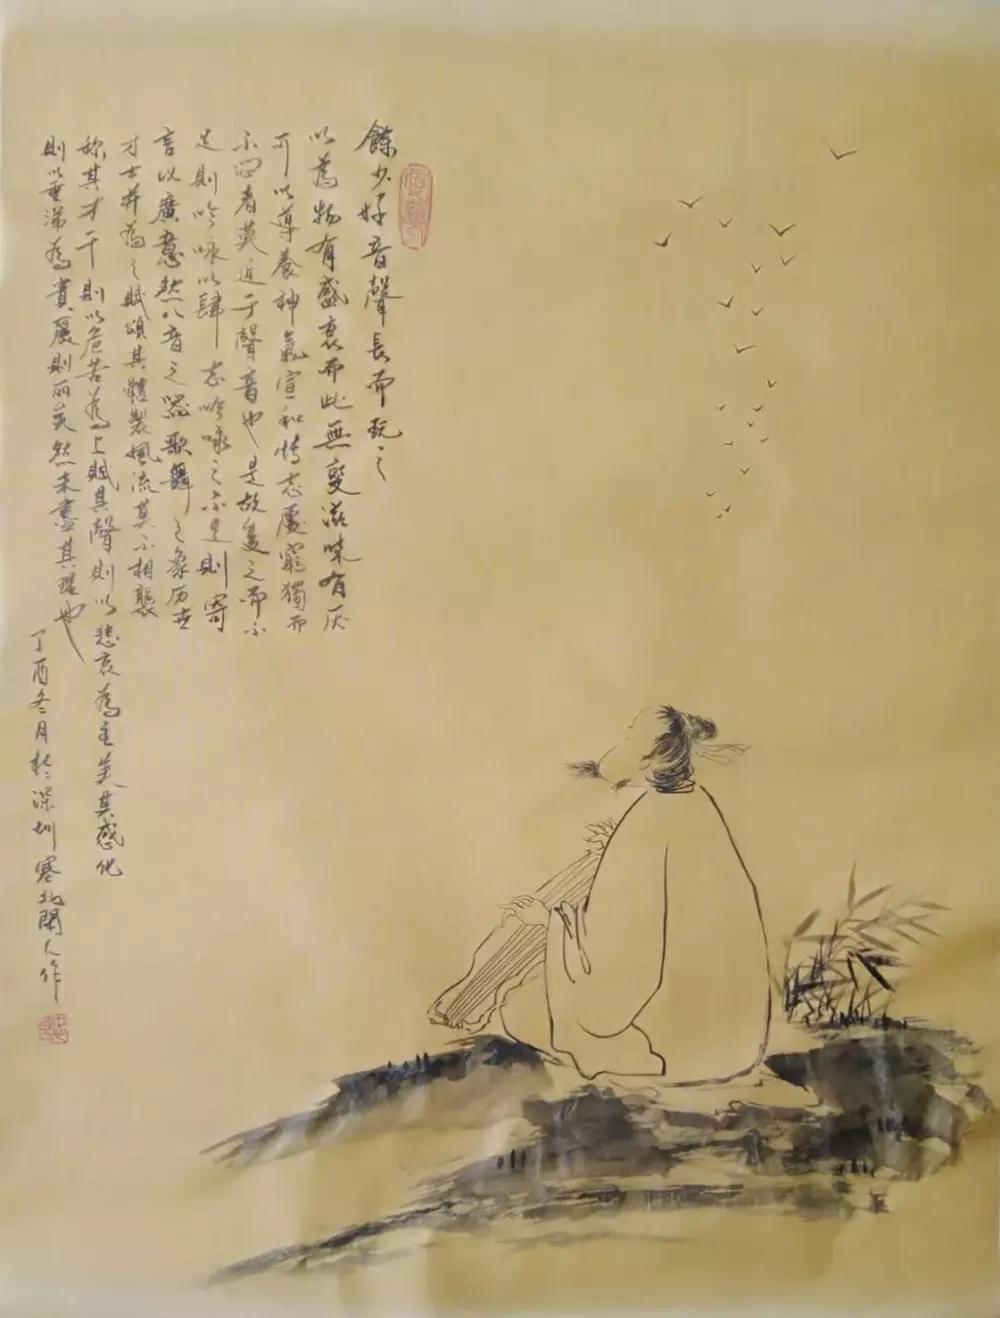 餘少好音聲長而玩之
以為物有盛衰而此無變滋味有厌
可以導養神氣宣和情志處窮獨而
不悶者莫近于聲音也是故復之而不
足則吟咏以肆志吟咏之不足則寄
言以廣意然八音之器歌舞之象历世
才士并為之賦頌其體製風流莫不相襲
称其才干則以危苦為上賦其聲則以悲哀為主美其感化
則以垂涕為貴麗則丽矣然未盡其理也
丁酉冬月於深圳塞北閑人作